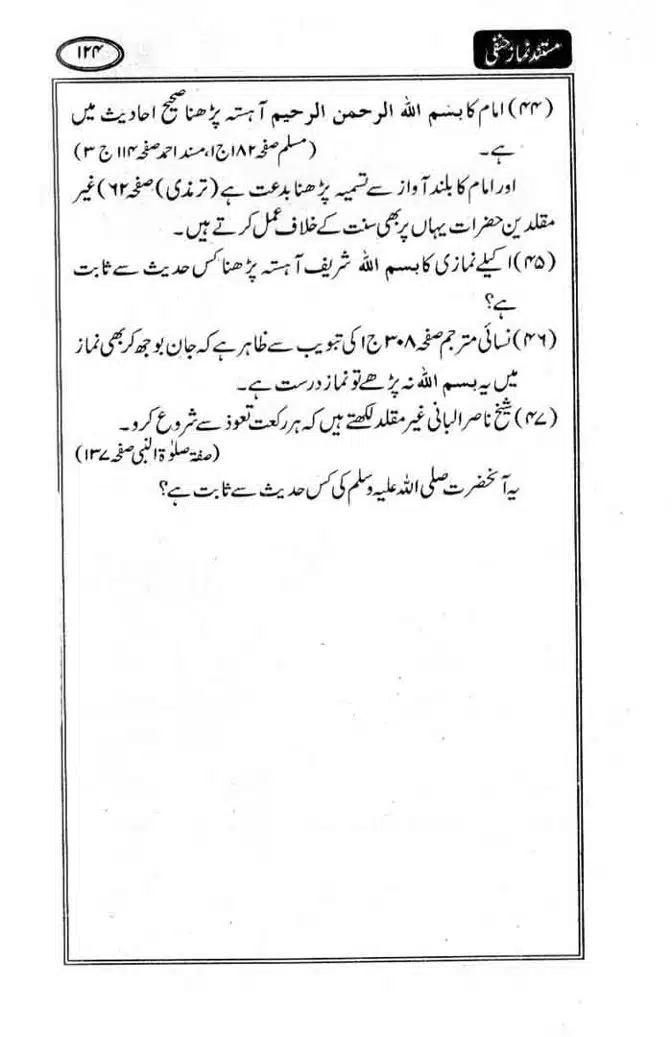 مستند نماز حنفی
۱۲۴
(۴۴) امام کا بسم الله الرحمن الرحیم آہستہ پڑھنا صحیح احادیث میں
ہے۔ (مسلم صفحہ ۱۸۲ ج۱، مسند احمد صفحہ ۱۱۴ ج ۳)
اور امام کا بلند آواز سے تسمیہ پڑھنا بدعت ہے (ترمذی) صفحہ ۶۲) غیر
مقلدین حضرات یہاں پر بھی سنت کے خلاف عمل کرتے ہیں۔
(۴۵) اکیلے نمازی کا بسم الله شریف آہستہ پڑھنا کس حدیث سے ثابت
ہے؟
(۴۶) نسائی مترجم صفحہ ۳۰۸ ج۱ کی تبویب سے ظاہر ہے کہ جان بوجھ کر بھی نماز
میں یہ بسم الله نہ پڑھے تو نماز درست ہے۔
(۴۷) شیخ ناصر البانی غیر مقلد لکھتے ہیں کہ ہر رکعت تعوذ سے شروع کرو۔
(صفۃ صلوٰۃ النبی صفحہ ۱۳۷)
یہ آنحضرت صلی اللہ علیہ وسلم کی کس حدیث سے ثابت ہے؟